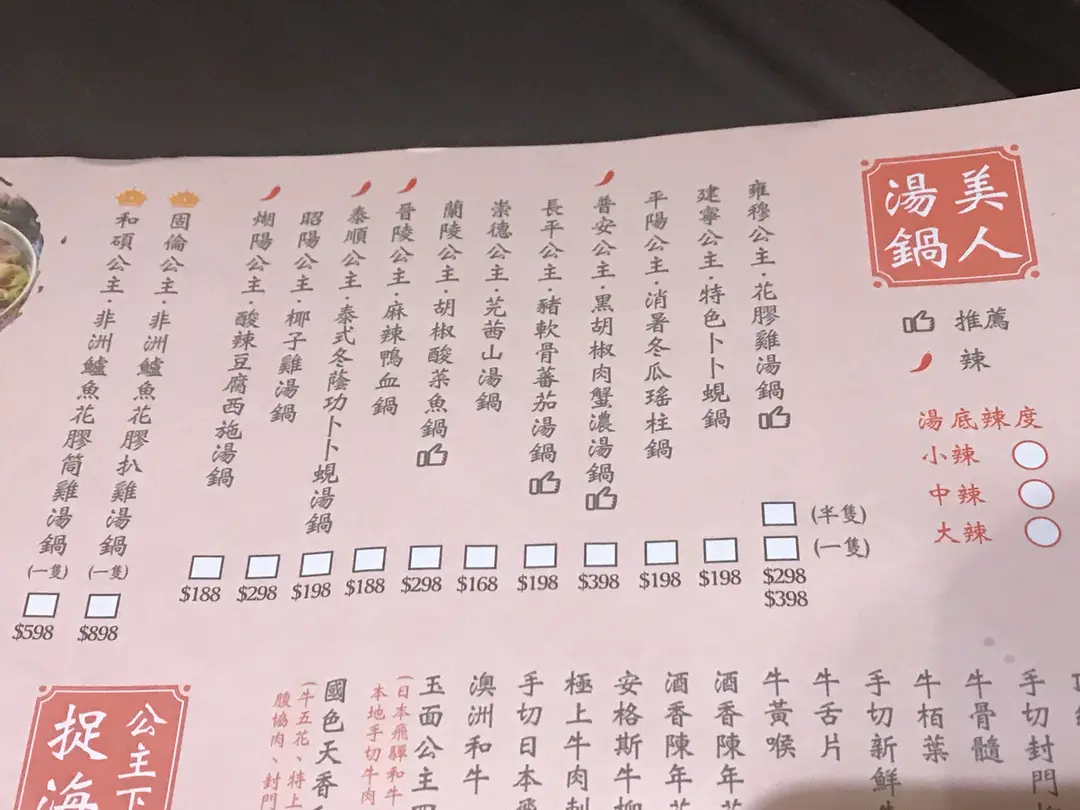 美人
湯鍋
推薦
辣
湯底辣度
小辣
中辣
大辣
雍穆公主·花膠雞湯鍋
(半隻)
(一隻)
$298
$398
建寧公主·特色卜卜蜆鍋
$198
平陽公主·消暑冬瓜瑤柱鍋
$198
普安公主·黑胡椒肉蟹濃湯鍋
$398
長平公主·豬軟骨蕃茄湯鍋
$198
崇德公主·芫茜山湯鍋
$168
蘭陵公主·胡椒酸菜魚鍋
$298
晉陵公主·麻辣鴨血鍋
$188
泰順公主·泰式冬蔭功卜卜蜆湯鍋
$198
昭陽公主·椰子雞湯鍋
$298
煳陽公主·酸辣豆腐西施湯鍋
$188
固倫公主·非洲鱸魚花膠扒雞湯鍋
(一隻)
$898
和碩公主·非洲鱸魚花膠筒雞湯鍋
(一隻)
$598
手切封門
牛骨髓
牛栢葉
手切新鮮
牛舌片
牛黃喉
酒香陳年
酒香陳年
安格斯牛柳
極上牛肉刺
手切日本
澳洲和牛
玉面公主四
(日本飛驒和牛
本地手切牛肉
國色天香
(牛五花、特上
腹協肉、封門
公主下
捉海